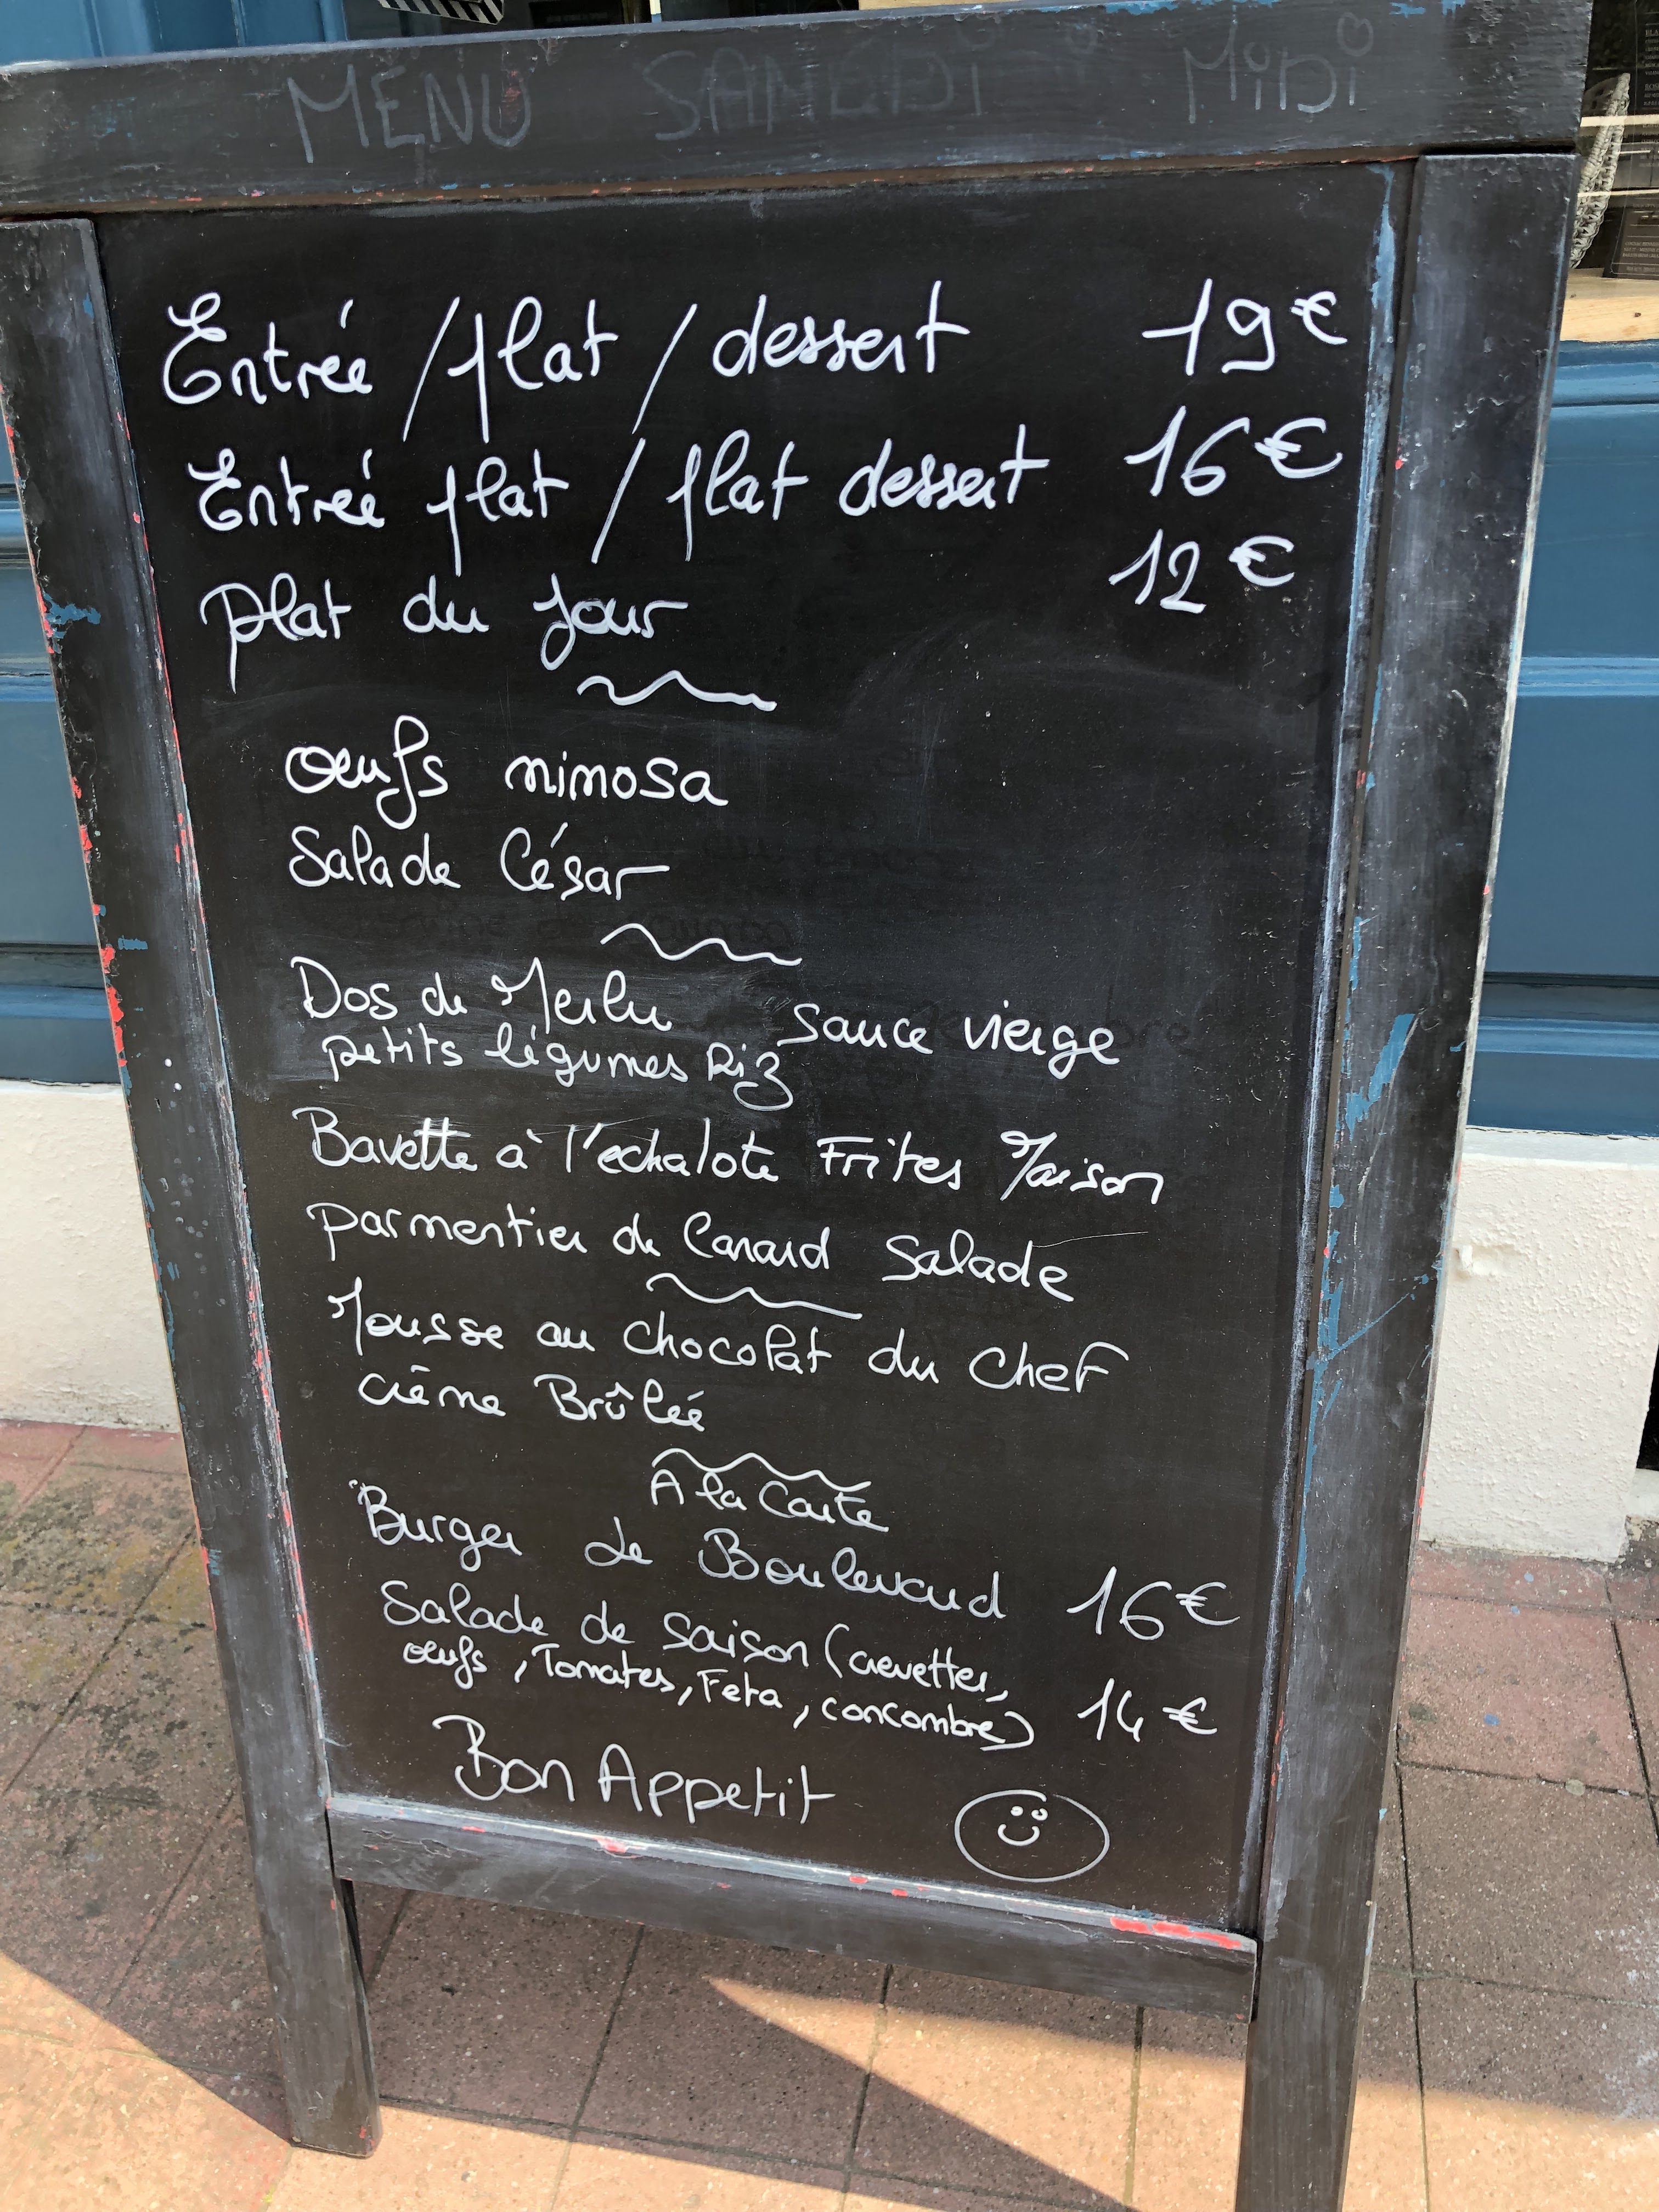 MENU SAMEDI MIDI
Entrée / plat / dessert 19€
Entrée plat / plat dessert 16€
Plat du jour 12€
oeufs mimosa
Salade César
Dos de Merlu sauce vierge
petits légumes Riz
Bavette à l'echalote Frites Maison
parmentier de Canard Salade
Mousse au chocolat du chef
crème Brûlée
A la Carte
Burger de Boulevard 16€
Salade de saison (crevettes,
oeufs, Tomates, Feta, concombre) 14€
Bon Appetit